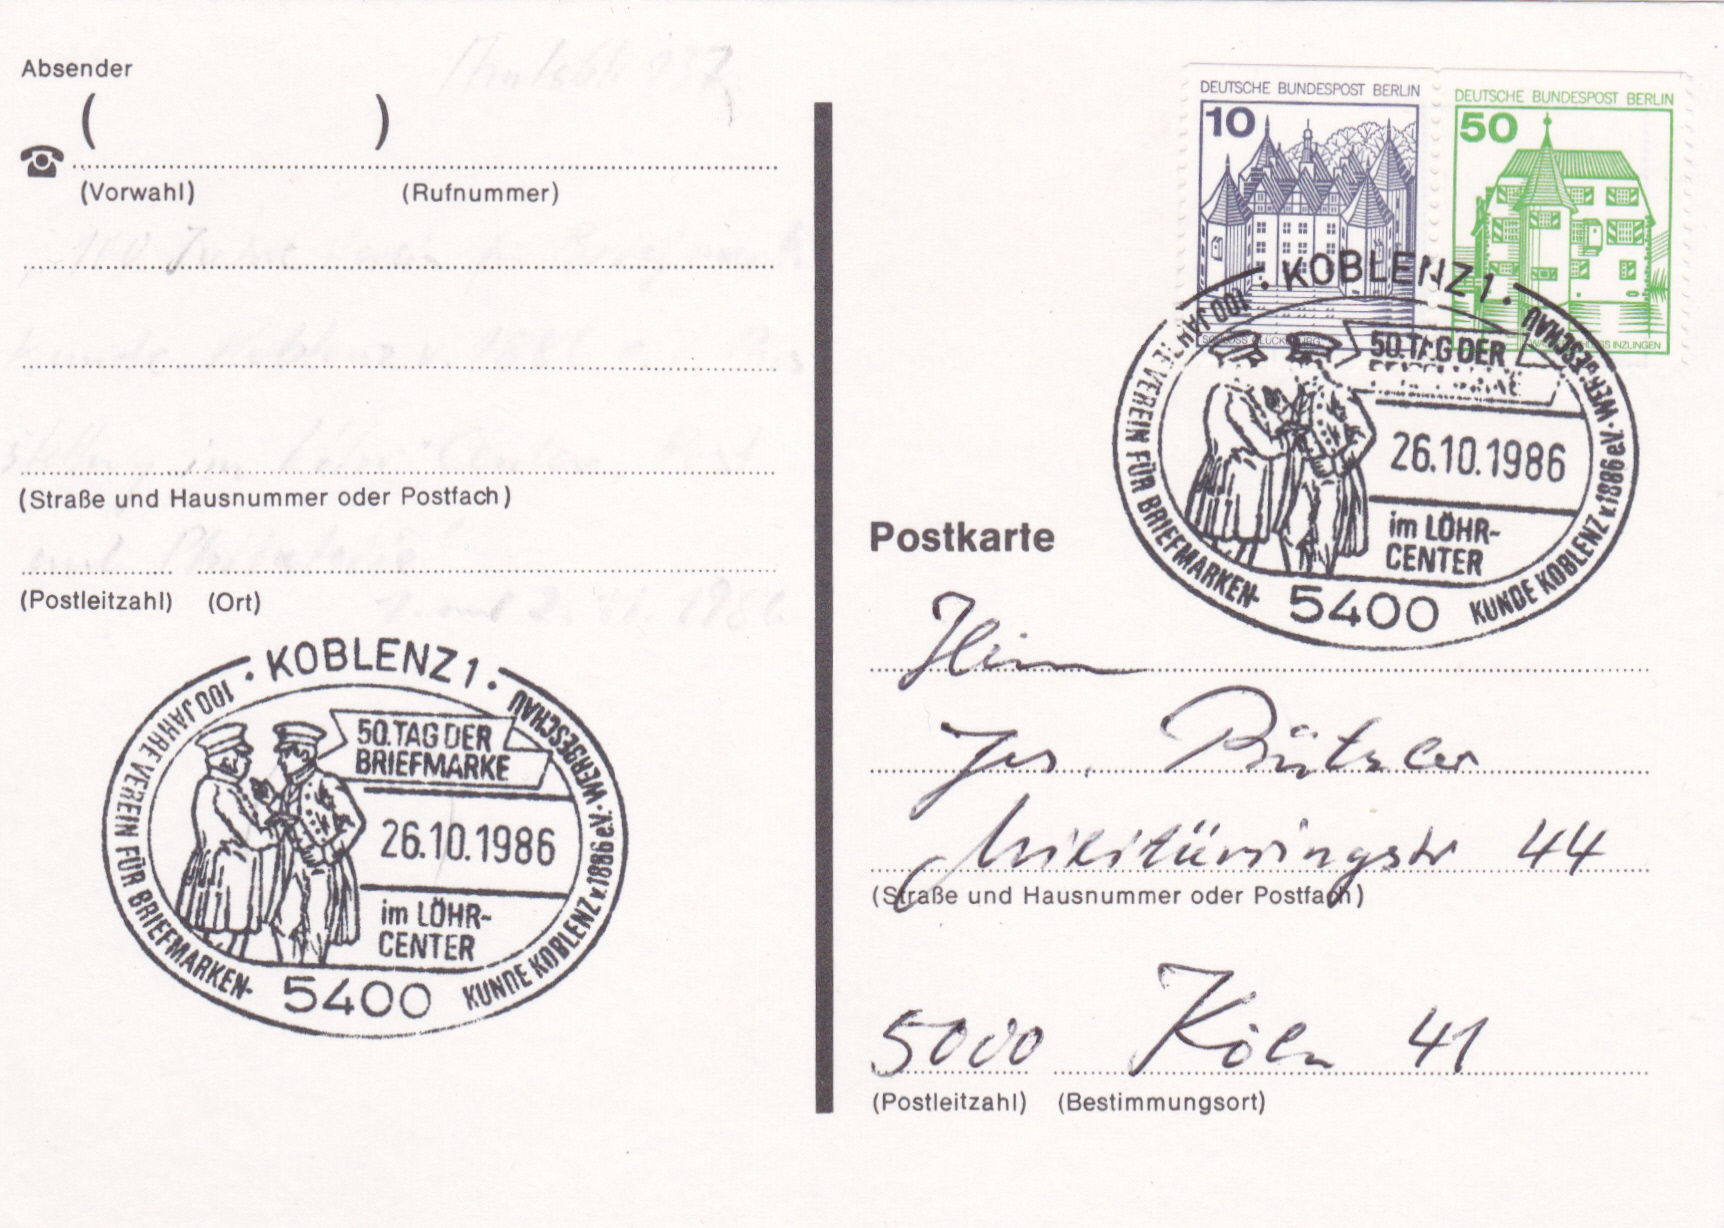 Absender
( )
(Vorwahl) (Rufnummer)
(Straße und Hausnummer oder Postfach)
(Postleitzahl) (Ort)
· KOBLENZ 1 ·
100 JAHRE VEREIN FÜR BRIEFMARKEN-
KUNDE KOBLENZ v. 1886 e.V. · WERBESCHAU
50. TAG DER
BRIEFMARKE
26.10.1986
im LÖHR-
CENTER
5400
DEUTSCHE BUNDESPOST BERLIN
10
SCHLOSS GLÜCKSBURG
DEUTSCHE BUNDESPOST BERLIN
50
WASSERSCHLOSS INZLINGEN
· KOBLENZ 1 ·
100 JAHRE VEREIN FÜR BRIEFMARKEN-
KUNDE KOBLENZ v. 1886 e.V. · WERBESCHAU
50. TAG DER
BRIEFMARKE
26.10.1986
im LÖHR-
CENTER
5400
Postkarte
Jos. Pützler
Militärringstr 44
(Straße und Hausnummer oder Postfach)
5000 Köln 41
(Postleitzahl) (Bestimmungsort)